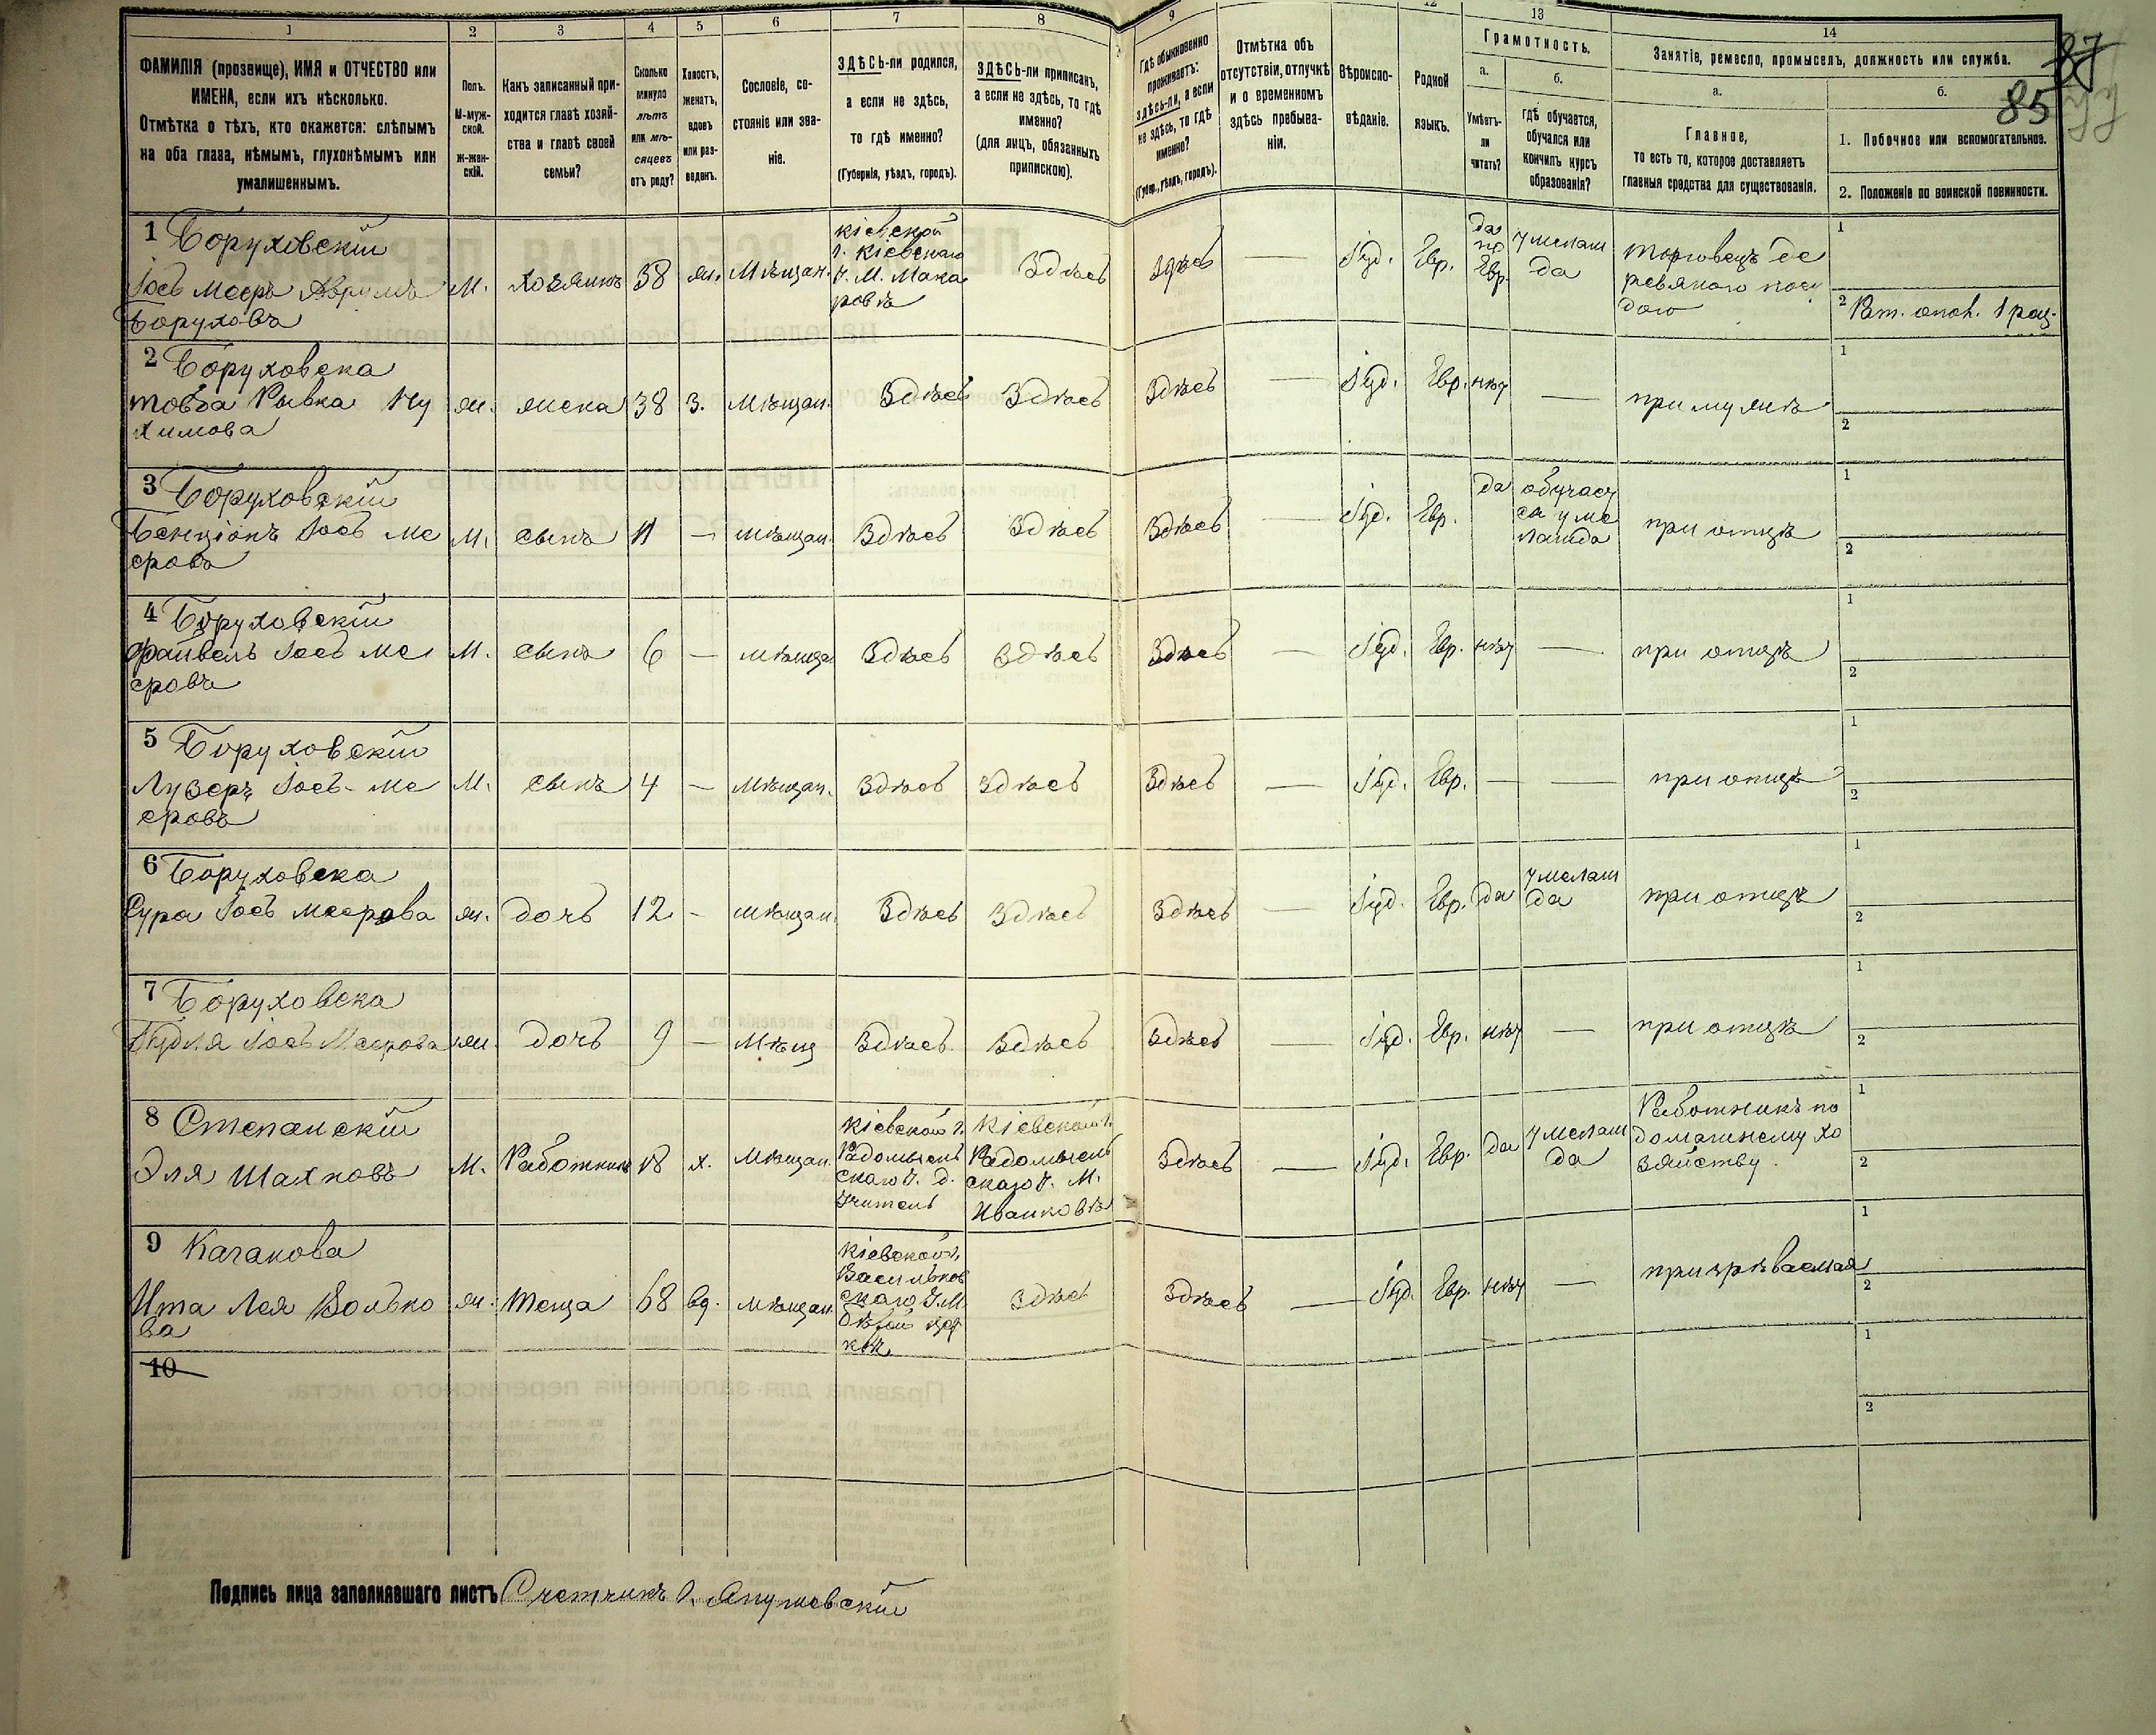 1 2 3 4 5 6 7 8 9 12 13 14
87
85
ФАМИЛІЯ (прозвище), ИМЯ и ОТЧЕСТВО или
ИМЕНА, если ихъ нѣсколько.
Отмѣтка о тѣхъ, кто окажется: слѣпымъ
на оба глаза, нѣмымъ, глухонѣмымъ или
умалишеннымъ.
Полъ.
М-муж-
ской.
Ж-жен-
скій.
Какъ записанный при-
ходится главѣ хозяй-
ства и главѣ своей
семьи?
Сколько
минуло
лѣтъ
или мѣ-
сяцевъ
отъ роду?
Холостъ,
женатъ,
вдовъ
или раз-
веденъ.
Сословіе, со-
стояніе или зва-
ніе.
ЗДѢСЬ-ли родился,
а если не здѣсь,
то гдѣ именно?
(Губернія, уѣздъ, городъ).
ЗДѢСЬ-ли приписанъ,
а если не здѣсь, то гдѣ
именно?
(для лицъ, обязанныхъ
припискою).
Гдѣ обыкновенно
проживаетъ:
здѣсь-ли, а если
не здѣсь, то гдѣ
именно?
(Губер., уѣздъ, городъ).
Отмѣтка объ
отсутствіи, отлучкѣ
и о временномъ
здѣсь пребыва-
ніи.
Вѣроиспо-
вѣданіе.
Родной
языкъ.
Грамотность.
а.
Умѣетъ-
ли
читать?
б.
гдѣ обучается,
обучался или
кончилъ курсъ
образованія?
Занятіе, ремесло, промыселъ, должность или служба.
а.
Главное,
то есть то, которое доставляетъ
главныя средства для существованія.
б.
1. Побочное или вспомогательное.
2. Положеніе по воинской повинности.
1 Боруховскій
Іосъ Мееръ Аврумъ
Боруховъ
М.
Хозяинъ
38
ж.
Мѣщан.
Кіевской
г. Кіевскаго
у. М. Мака
ровѣ
Здѣсь
Здѣсь
—
Іуд.
Евр.
да
по
Евр.
у мелам
да
торговецъ де
ревяною посу
дою
1
2 Рат. опол. 1 раз.
2 Боруховска
Товба Рывка Ну
химова
ж.
жена
38
з.
мѣщан.
Здѣсь
Здѣсь
Здѣсь
—
Іуд.
Евр.
нѣт
—
при мужѣ
1
2
3 Боруховскій
Бенціонъ Іосъ Ме
еровъ
М.
сынъ
11
—
мѣщан.
Здѣсь
Здѣсь
Здѣсь
—
Іуд.
Евр.
да
обучает
ся у ме
ламда
при отцѣ
1
2
4 Боруховскій
Файвель Іосъ Ме
еровъ
М.
сынъ
6
—
мѣща
Здѣсь
Здѣсь
Здѣсь
—
Іуд.
Евр.
нѣт
—
при отцѣ
1
2
5 Боруховскій
Лузеръ Іосъ-Ме
еровъ
М.
сынъ
4
—
мѣщан.
Здѣсь
Здѣсь
Здѣсь
—
Іуд.
Евр.
—
—
при отцѣ
1
2
6 Боруховска
Сура Іосъ Меерова
ж.
дочь
12
-
мѣщан.
Здѣсь
Здѣсь
Здѣсь
—
Іуд.
Евр.
да
у мелам
да
при отцѣ
1
2
7 Боруховска
Іосъ Меерова
ж.
дочь
9
—
Мѣщ
Здѣсь
Здѣсь
Здѣсь
—
Іуд.
Евр.
нѣт
—
при отцѣ
1
2
8 Степанскій
Эля Шахновъ
М.
Работникъ
18
х.
Мѣщан.
Кіевской г.
Радомысль
скаго у. д.
Кіевской г.
Радомысль
скаго у. М.
Иванковѣ
Здѣсь
—
Іуд.
Евр.
да
у мелам
да
Работникъ по
домашнему хо
зяйству.
1
2
9 Качанова
Ита Лея Волько
ва
ж.
теща
68
вд.
мѣщан.
Кіевской г.
Васильков
скаго у. М.
Бѣлой цер
квѣ
Здѣсь
Здѣсь
—
Іуд.
Евр.
нѣт
—
призрѣваемая
1
2
10
1
2
Подпись лица заполнявшаго листъ Счетчикъ